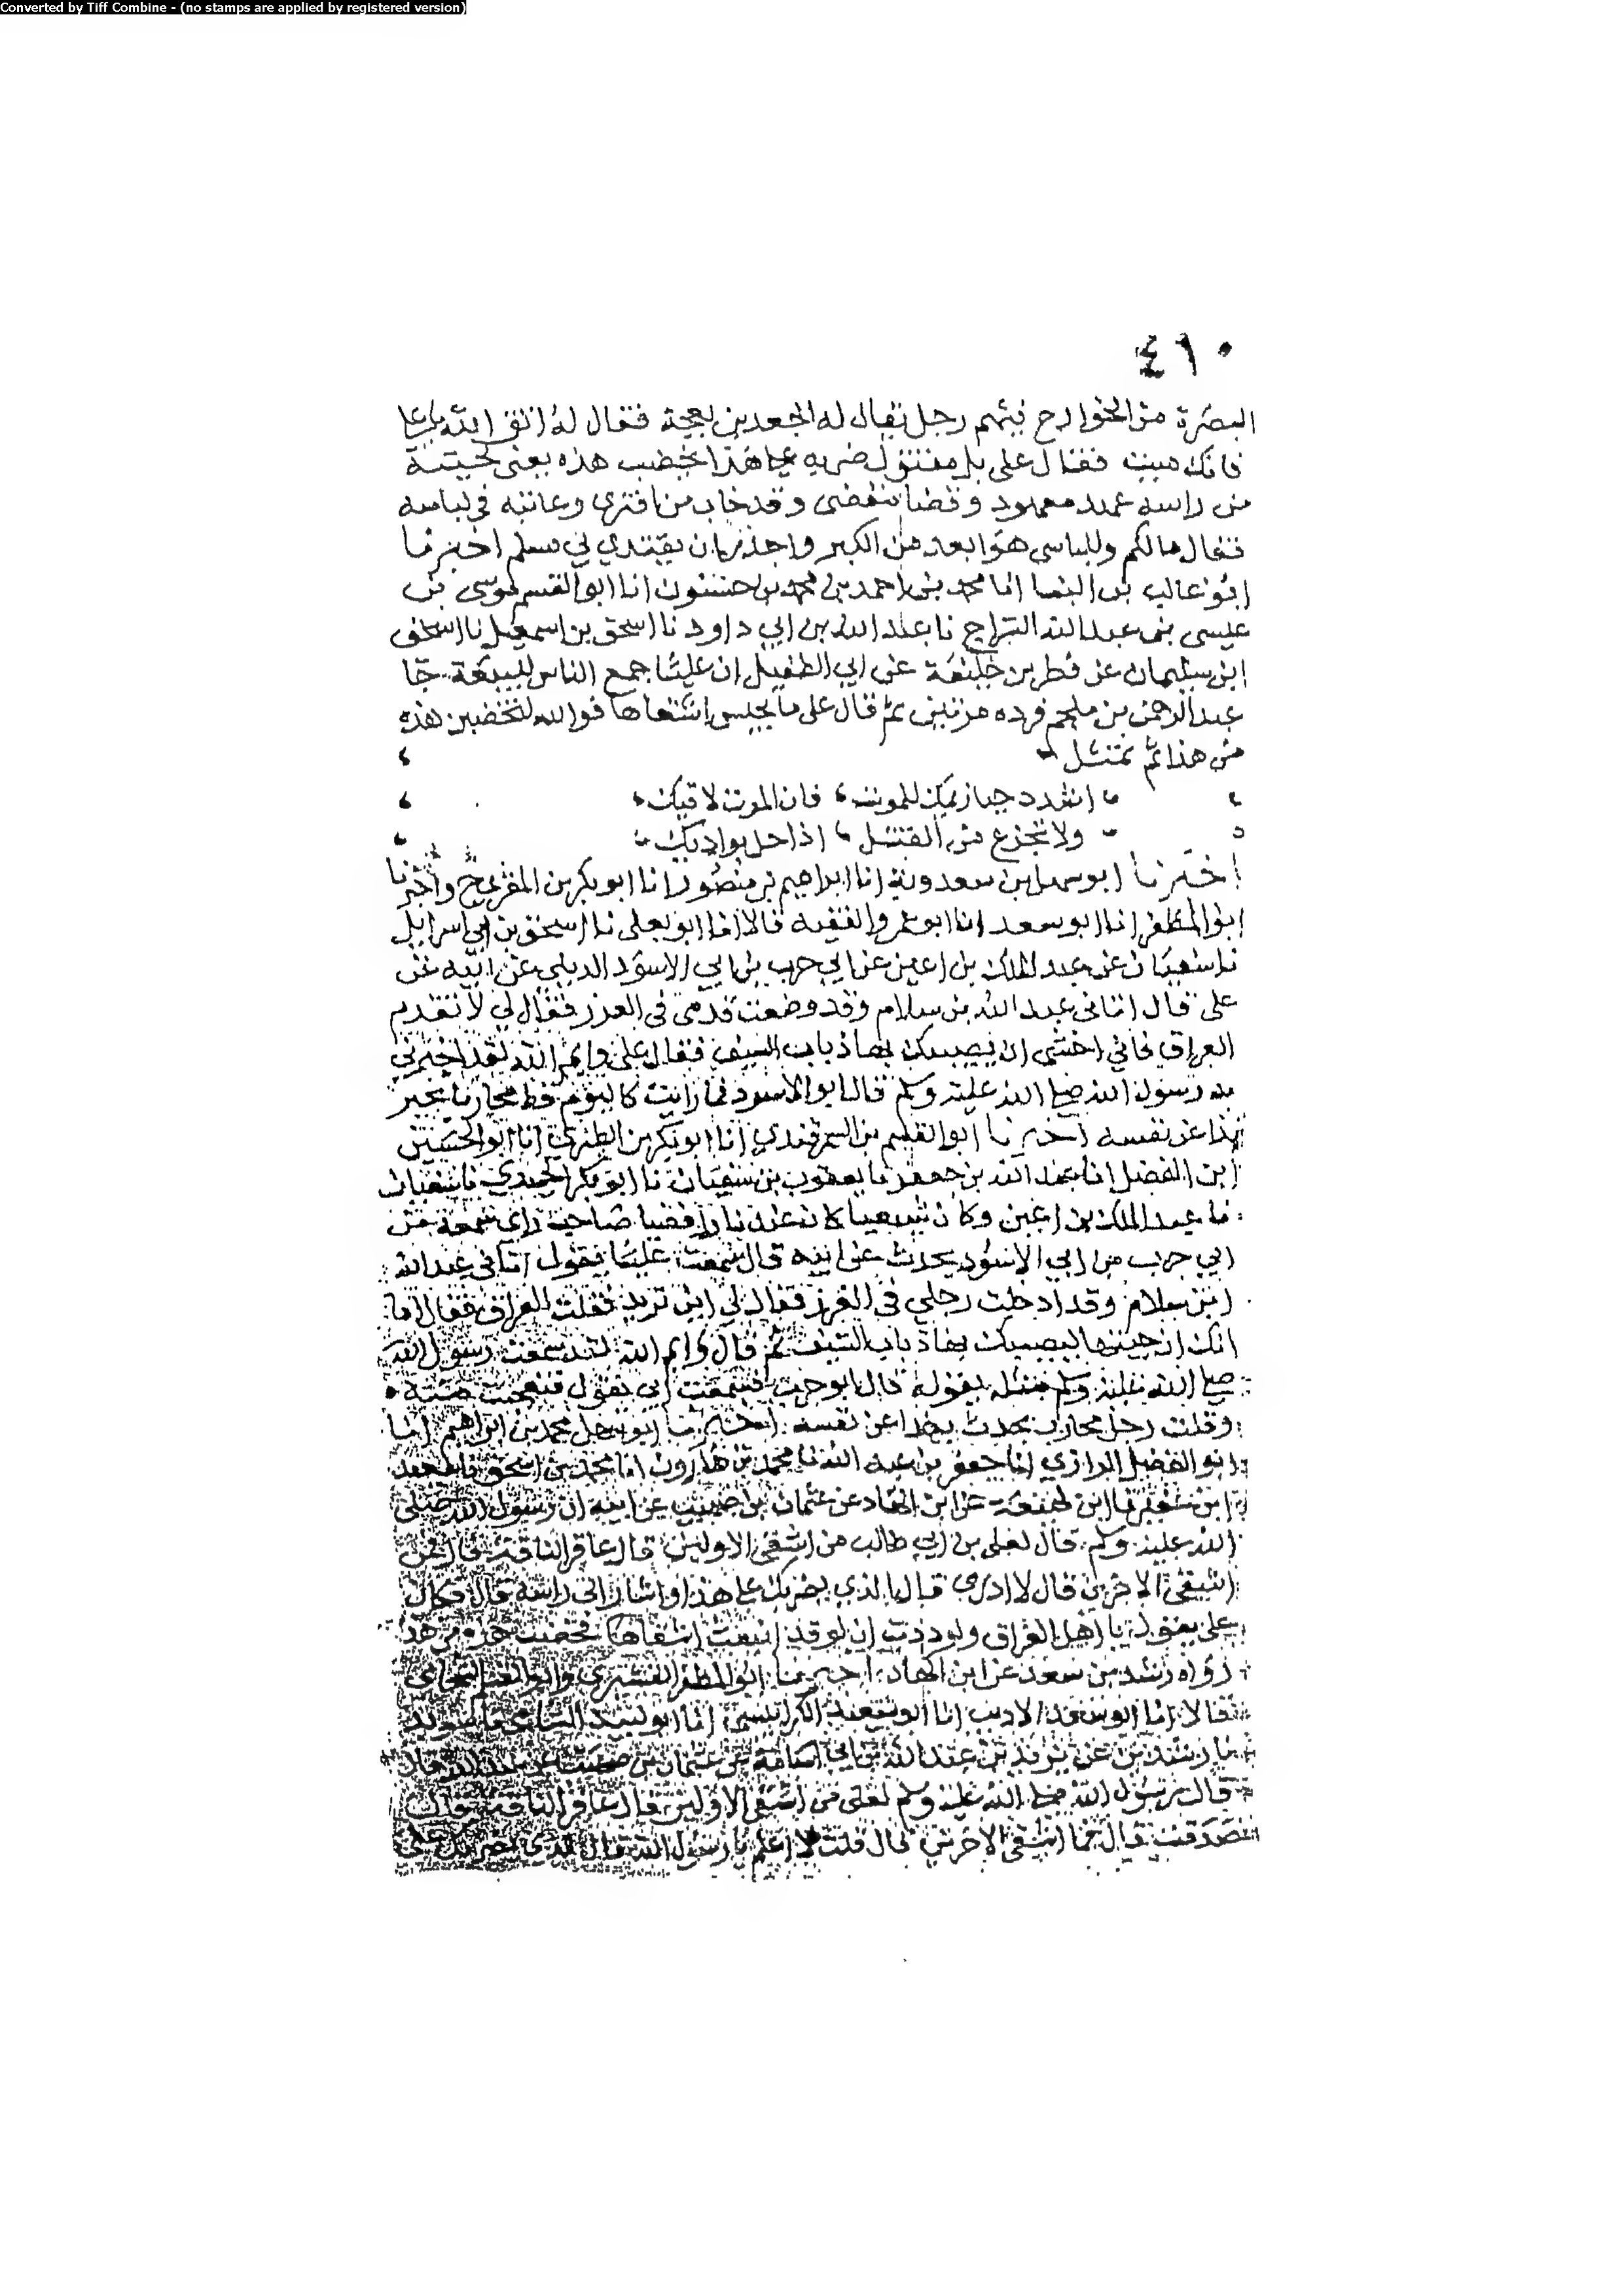 Converted by Tiff Combine - (no stamps are applied by registered version)
٤١٠
البصرة من الخوارج فيهم رجل يقال له الجعد بن بعجة فقال له اتق الله يا علي
فانك ميت فقال علي بل مقتول ضربه على هذا يخضب هذه يعني لحيته
من راسه عهد معهود وقضا مقضي وقد خاب من افترى وعاتبه في لباسه
فقال مالكم وللباسي هو ابعد من الكبر واجدر ان يقتدي بي مسلم اخبرنا
ابو غالب بن البنا انا محمد بن احمد بن محمد بن حسنون انا ابو القسم موسى بن
عيسى بن عبد الله السراج نا عبد الله بن ابي داود نا اسحق بن اسمعيل نا اسحق
ابن سليمان عن فطر بن خليفة عن ابي الطفيل ان عليا جمع الناس للبيعة جا
عبد الرحمن بن ملجم فرده مرتين ثم قال علي ما يحبس اشقاها فوالله لتخضبن هذه
من هذا ثم تمثل
اشدد حيازيمك للموت فان الموت لاقيك
ولا تجزع من القتل اذا حل بواديك
اخبرنا ابو سهل بن سعدوية انا ابراهيم بن منصور انا ابو بكر بن المقرئ ح واخبرنا
ابو المظفر انا ابو سعد انا ابو عمرو الفقيه قالا انا ابو يعلى نا اسحق بن ابي اسرايل
نا سفيان عن عبد الملك بن اعين عن ابي حرب بن ابي الاسود الديلي عن ابيه عن
علي قال اتاني عبد الله بن سلام وقد وضعت قدمي في الغرز فقال لي لا تقدم
العراق فاني اخشى ان يصيبك بها ذباب السيف فقال علي وايم الله لقد اخبرني
به رسول الله صلى الله عليه وسلم قال ابو الاسود فما رايت كاليوم قط محاربا يخبر
بذا عن نفسه اخبرنا ابو القسم بن السمرقندي انا ابو بكر بن الطبري انا ابو الحسين
ابن الفضل انا عبد الله بن جعفر نا يعقوب بن سفيان نا ابو بكر الحميدي نا سفيان
نا عبد الملك بن اعين وكان شيعيا كان عندنا رافضيا صاحب راي سمعه من
ابي حرب بن ابي الاسود يحدث عن ابيه قال سمعت عليا يقول اتاني عبد الله
ابن سلام وقد ادخلت رجلي في الغرز فقال لي اين تريد فقلت العراق فقال اما
انك ان جيتها ليصيبك بها ذباب السيف ثم قال وايم الله لقد سمعت رسول الله
صلى الله عليه وسلم قبله يقوله قال ابو حرب فسمعت ابي يقول فتعجبت منه
وقلت رجل محارب يحدث بهذا عن نفسه اخبرنا ابو سهل محمد بن ابراهيم انا
ابو الفضل الرازي انا جعفر بن عبد الله نا محمد بن هارون انا محمد بن اسحق نا
ابن نا ابن لهيعة عن ابن الهاد عن عثمان بن صهيب عن ابيه ان رسول الله صلى
الله عليه وسلم قال لعلي بن ابي طالب من اشقى الاولين قال عاقر الناقة قال فمن
اشقى الاخرين قال لا ادري قال الذي يضربك على هذا واشار الى راسه قال فكان
علي يقول يا اهل العراق ولوددت ان لو قد انبعث اشقاها فخضب هذه من هذا
رواه رشد بن سعد عن ابن الهاد اخبرنا ابو المظفر القشيري وابو القسم الشحامي
قالا انا ابو سعد الاديب انا ابو سعيد الكرابيسي انا ابو لبيد السامي نا سويد
نا رشد بن عن يزيد بن عبد الله بن ابي اسامة عن عثمان بن صهيب عن قال
قال رسول الله صلى الله عليه وسلم لعلي من اشقى الاولين قال عاقر الناقة قال
صدقت قال فما اشقى الاخرين قال قلت لا اعلم يا رسول الله قال الذي يضربك على